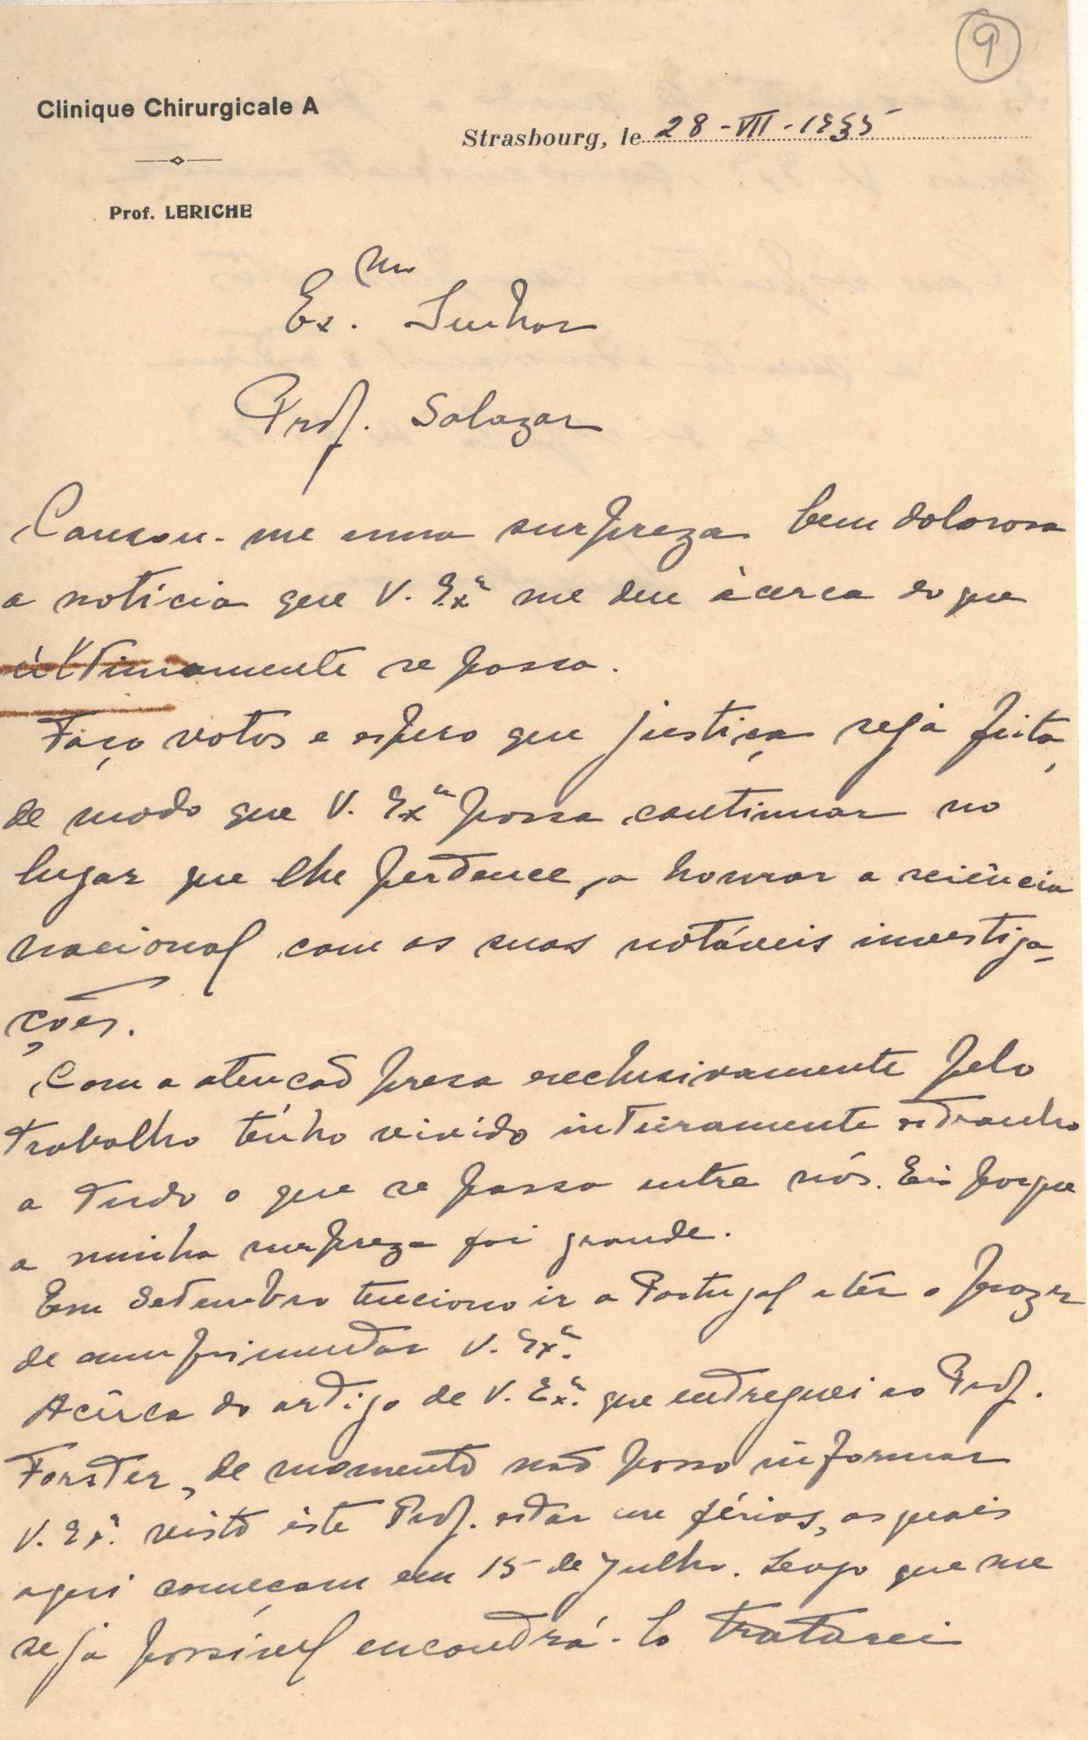 9
Clinique Chirurgicale A
Strasbourg, le 28-VII-1935
Prof. LERICHE
Ex.mo Senhor
Prof. Salazar
Causou-me uma surpreza bem dolorosa
a notícia que V. Exª me deu àcerca do que
últimamente se passa.
Faço votos e espero que justiça seja feita,
de modo que V. Exª possa continuar no
lugar que lhe pertence, a honrar a sciência
nacional com as suas notáveis investiga-
ções.
Com a atenção presa exclusivamente pelo
trabalho tenho vivido inteiramente estranho
a tudo o que se passa entre nós. Eis porque
a minha surpreza foi grande.
Em Setembro tenciono ir a Portugal e ter o prazer
de cumprimentar V. Exª.
Acêrca do artigo de V. Exª. que entreguei ao Prof.
Forster, de momento não posso informar
V. Exª. visto êste Prof. estar em férias, as quais
aqui começam em 15 de Julho. Logo que me
seja possível encontrá-lo tratarei